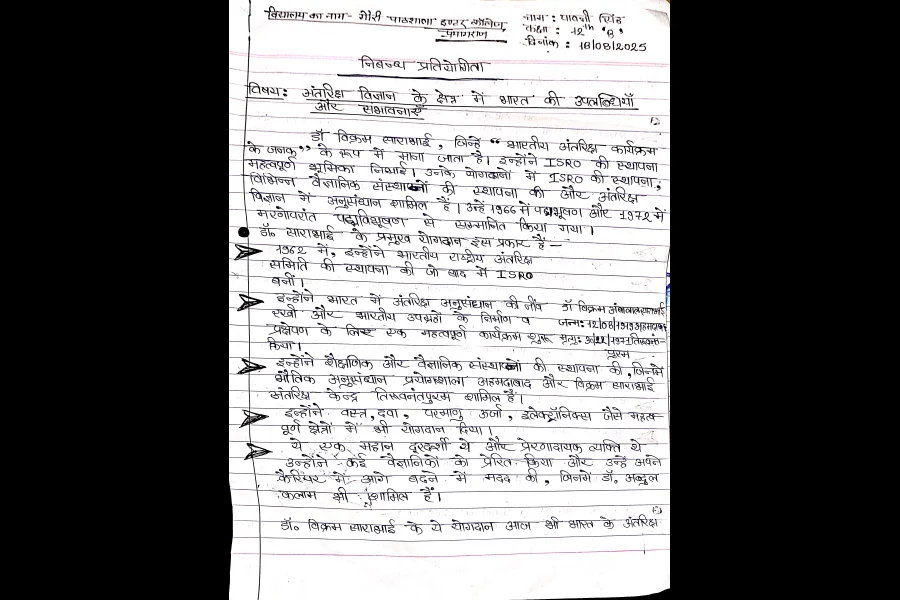 विद्यालय का नाम - गौरी पाठशाला इण्टर कॉलेज,
प्रयागराज
नाम : पावनी सिंह
कक्षा : 12th "B"
दिनांक : 18/08/2025
निबन्ध प्रतियोगिता
विषय: अंतरिक्ष विज्ञान के क्षेत्र में भारत की उपलब्धियाँ
और संभावनाएँ
डॉ विक्रम साराभाई, जिन्हें "भारतीय अंतरिक्ष कार्यक्रम
के जनक" के रूप में माना जाता है। इन्होंने ISRO की स्थापना
महत्वपूर्ण भूमिका निभाई। उनके योगदानों में ISRO की स्थापना,
विभिन्न वैज्ञानिक संस्थानों की स्थापना की और अंतरिक्ष
विज्ञान में अनुसंधान शामिल हैं। उन्हें 1966 में पद्मभूषण और 1972 में
मरणोपरांत पद्मविभूषण से सम्मानित किया गया।
डॉ० साराभाई के प्रमुख योगदान इस प्रकार हैं -
1962 में, इन्होंने भारतीय राष्ट्रीय अंतरिक्ष
समिति की स्थापना की जो बाद में ISRO
बनी।
इन्होंने भारत में अंतरिक्ष अनुसंधान की नींव
रखी और भारतीय उपग्रहों के निर्माण व
प्रक्षेपण के लिए एक महत्वपूर्ण कार्यक्रम शुरू
किया।
डॉ विक्रम अंबालाल साराभाई
जन्म: 12/08/1919 अहमदाबाद
मृत्यु: 30/12/1971 तिरुवनंत-
पुरम
इन्होंने शैक्षणिक और वैज्ञानिक संस्थानों की स्थापना की, जिनमें
भौतिक अनुसंधान प्रयोगशाला अहमदाबाद और विक्रम साराभाई
अंतरिक्ष केन्द्र तिरुवनंतपुरम शामिल हैं।
इन्होंने वस्त्र, दवा, परमाणु ऊर्जा, इलेक्ट्रॉनिक्स जैसे महत्व-
पूर्ण क्षेत्रों में भी योगदान दिया।
ये एक महान दूरदर्शी थे और प्रेरणादायक व्यक्ति थे
उन्होंने कई वैज्ञानिकों को प्रेरित किया और उन्हें अपने
कैरियर में आगे बढ़ने में मदद की, जिनमें डॉ. अब्दुल
कलाम भी शामिल हैं।
डॉ० विक्रम साराभाई के ये योगदान आज भी भारत के अंतरिक्ष